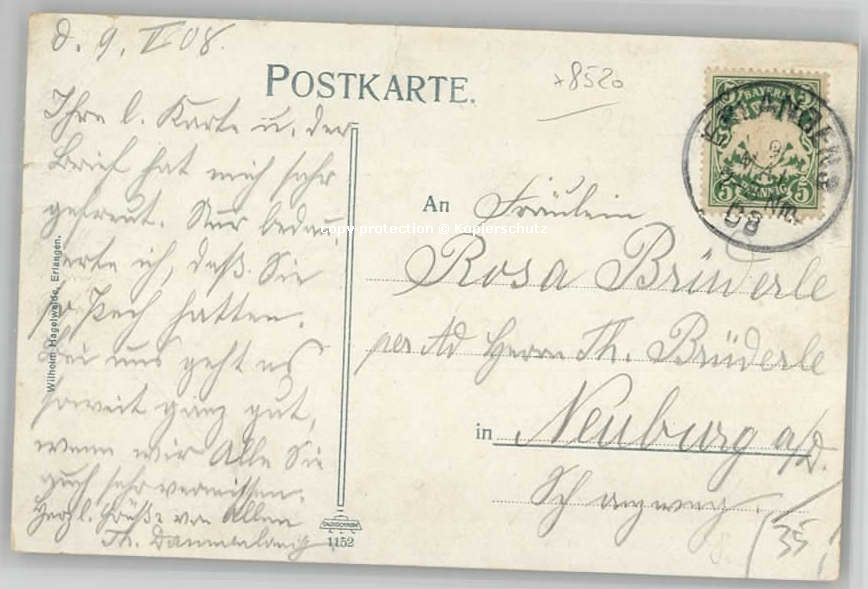 d. 9. II 08.
POSTKARTE.
*8520
Ihre l. Karte u. der
Brief hat mich sehr
gefreut. Nur bedau-
erte ich, daß Sie
so Pech hatten.
Bei uns geht es
soweit ganz gut,
wenn wir Alle Sie
auch sehr vermissen.
Herzl. Grüße von Allen
Th.
BAYERN
5 PFENNIG 5
ERLANGEN
9
08
An Fräulein
copy-protection © Kopierschutz
Rosa Brüderle
per Ad Herrn Th. Brüderle
in Neuburg a/D.
(35)
Wilhelm Hagelweide, Erlangen.
1152